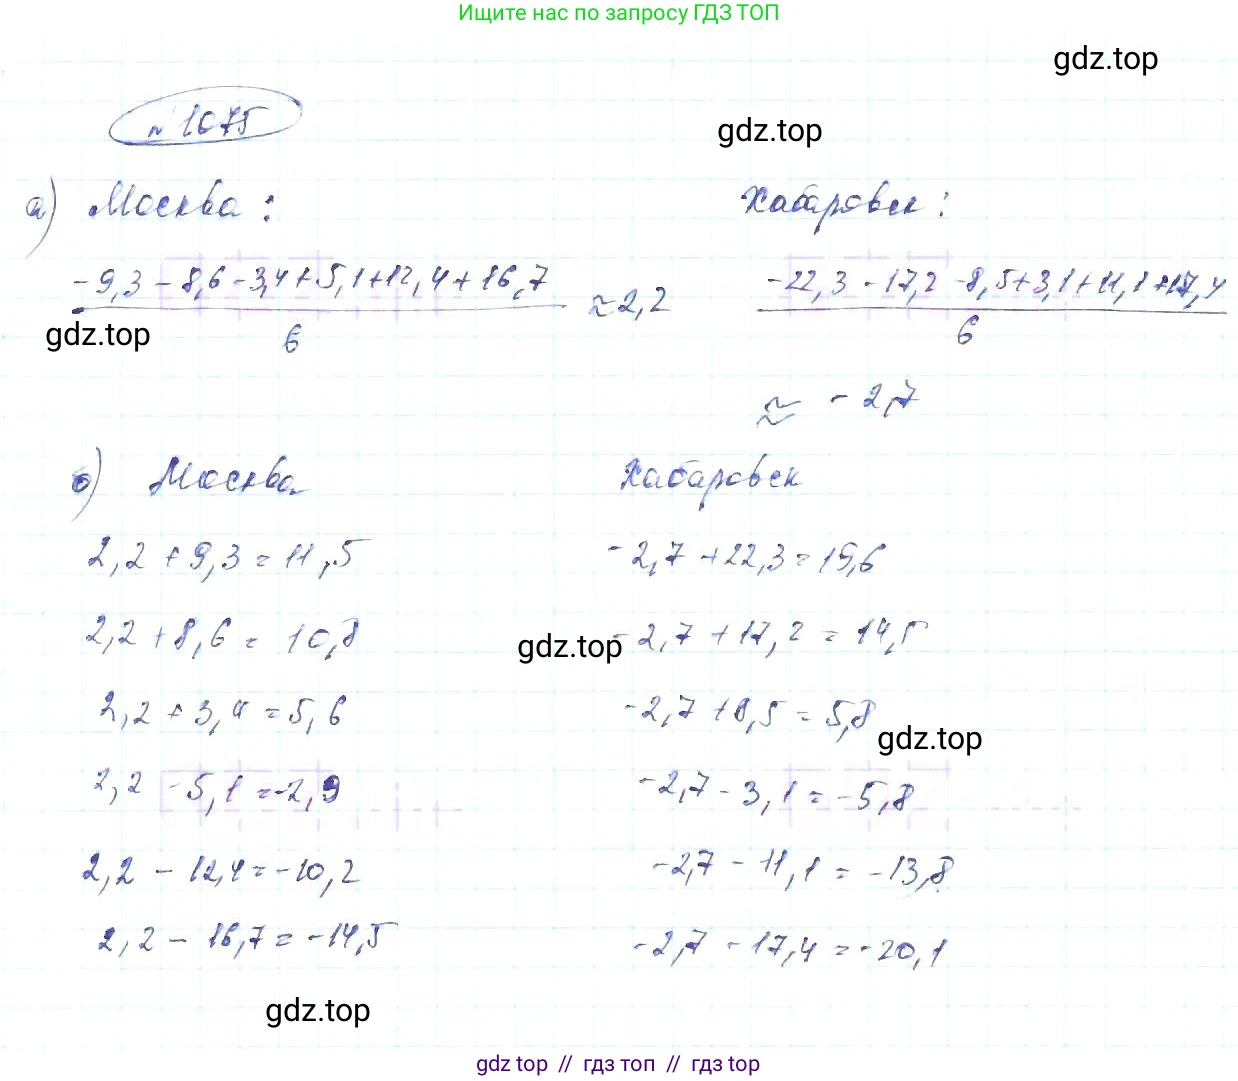 Ищите нас по запросу ГДЗ ТОП
gdz.top
№ 1075
gdz.top
а) Москва: Хабаровск:
-9,3 - 8,6 - 3,4 + 5,1 + 12,4 + 16,7 / 6 ≈ 2,2 -22,3 - 17,2 - 8,5 + 3,1 + 11,1 + 17,4 / 6
gdz.top
≈ -2,7
б) Москва Хабаровск
2,2 + 9,3 = 11,5 -2,7 + 22,3 = 19,6
2,2 + 8,6 = 10,8 gdz.top -2,7 + 17,2 = 14,5
2,2 + 3,4 = 5,6 -2,7 + 8,5 = 5,8
gdz.top
2,2 - 5,1 = -2,9 -2,7 - 3,1 = -5,8
2,2 - 12,4 = -10,2 -2,7 - 11,1 = -13,8
2,2 - 16,7 = -14,5 -2,7 - 17,4 = -20,1
gdz.top
gdz top // гдз топ // гдз top